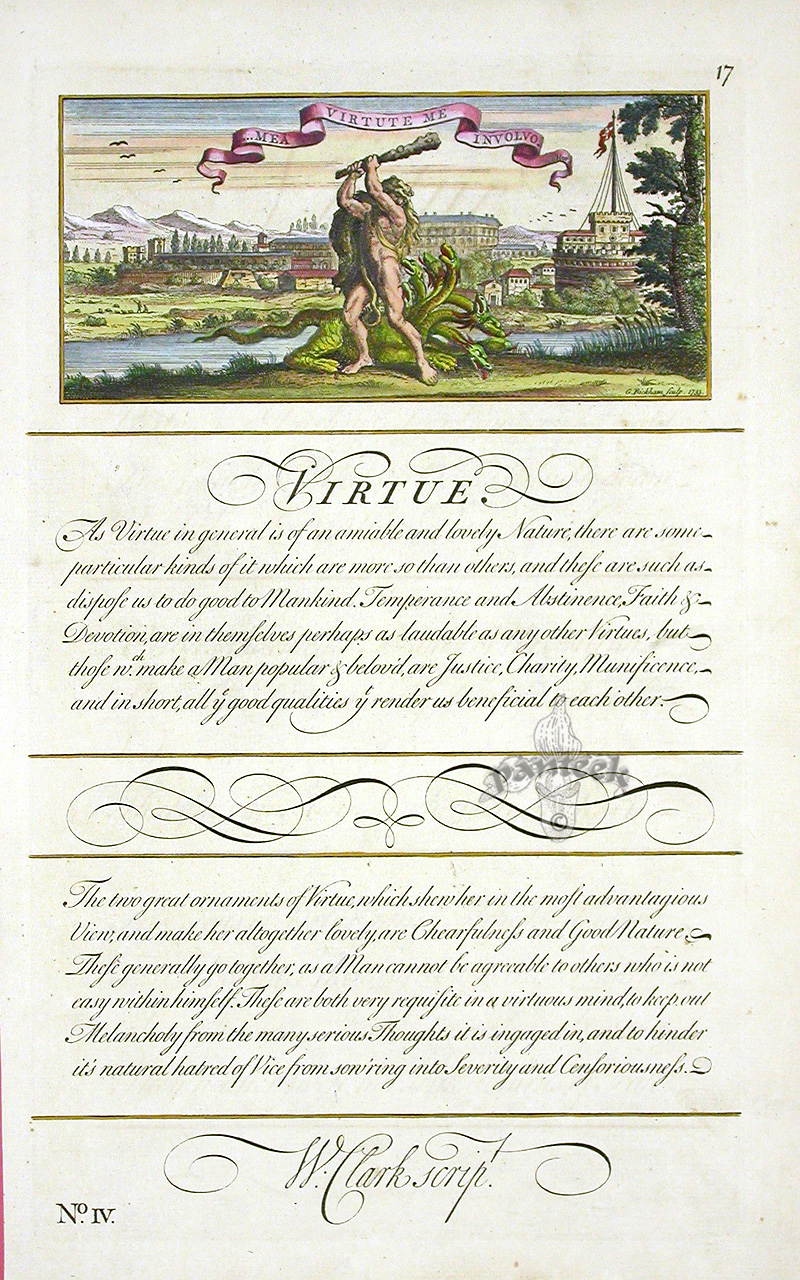 17
...MEA VIRTUTE ME INVOLVO.
G. Bickham sculp. 1733
VIRTUE.
As Virtue in general is of an amiable and lovely Nature, there are some
particular kinds of it which are more so than others, and these are such as
dispose us to do good to Mankind. Temperance and Abstinence, Faith &
Devotion, are in themselves perhaps as laudable as any other Virtues, but
those wch. make a Man popular & belov'd, are Justice, Charity, Munificence,
and in short, all ye good qualities yt render us beneficial to each other.
panteek
©
The two great ornaments of Virtue, which shew her in the most advantagious
View, and make her altogether lovely, are Chearfulness and Good Nature.
These generally go together, as a Man cannot be agreeable to others who is not
easy within himself. These are both very requisite in a virtuous mind, to keep out
Melancholy from the many serious Thoughts it is ingaged in, and to hinder
it's natural hatred of Vice from sow'ring into Severity and Censoriousness.
W. Clark script.
No. IV.